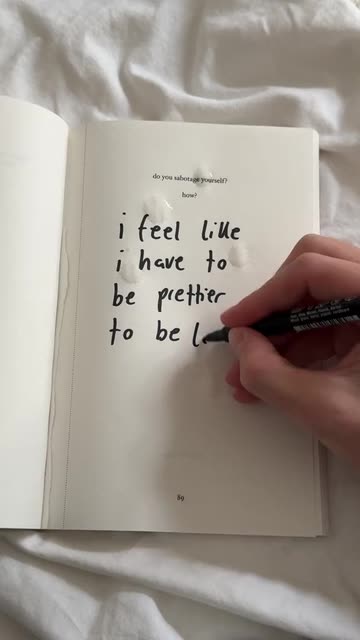 do you sabotage yourself?
how?
i feel like
i have to
be prettier
to be l
89